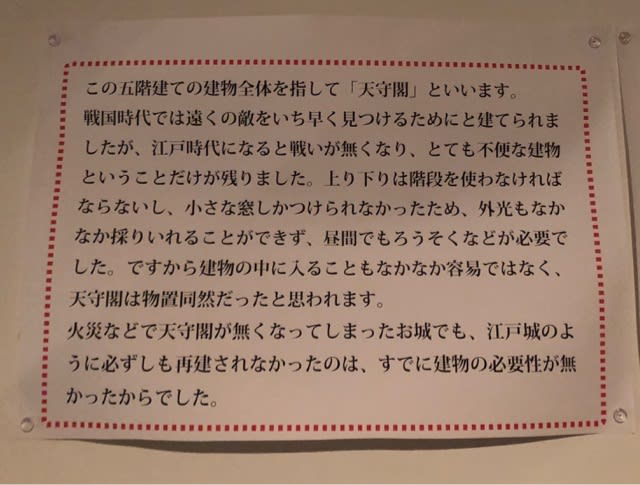 この五階建ての建物全体を指して「天守閣」といいます。
戦国時代では遠くの敵をいち早く見つけるためにと建てられま
したが、江戸時代になると戦いが無くなり、とても不便な建物
ということだけが残りました。上り下りは階段を使わなければ
ならないし、小さな窓しかつけられなかったため、外光もなか
なか採りいれることができず、昼間でもろうそくなどが必要で
した。ですから建物の中に入ることもなかなか容易ではなく、
天守閣は物置同然だったと思われます。
火災などで天守閣が無くなってしまったお城でも、江戸城のよ
うに必ずしも再建されなかったのは、すでに建物の必要性が無
かったからでした。